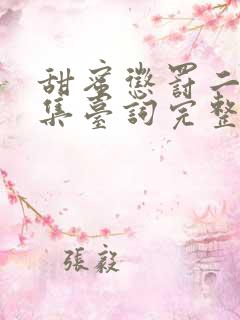 甜蜜懲罰二
集臺詞完整
張毅